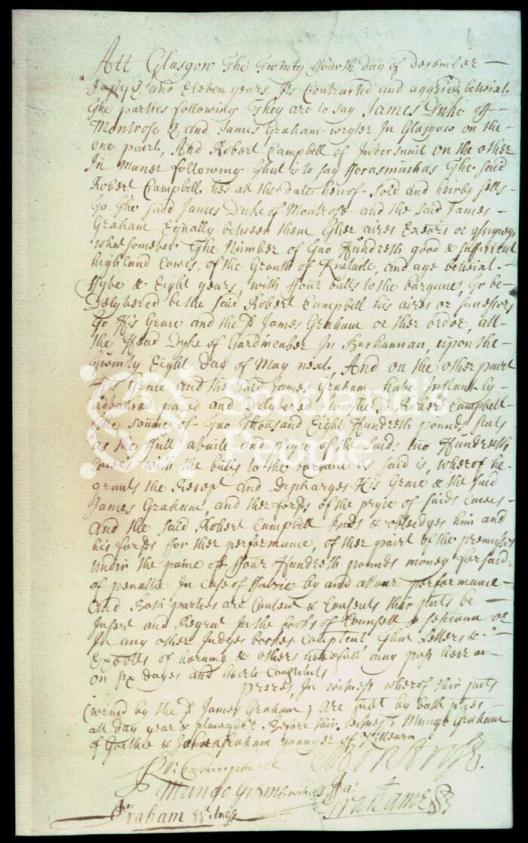 Att Glasgow The Twenty ffourth day of december
and Eleven years It is Contracted and aggried betwixt
the parties following They are to say James Duke off
Montrose &c and James Graham wryter In Glasgow on the
one pairt, And Robert Campbell of Inversnait on the other
In maner following That is to say fforasmuchas The said
Robert Campbell hes att the date hereof Sold and heirby sells
To the said James Duke of Montrose and the said James
Graham Equally betwixt them Ther aires Exers or assigneys
whatsomever The Number of Two Hundreth good & sufficient
highland Cowes, of the Growth of Kintaile, and age betwixt
ffyve & Eight years, with ffour bulls to the bargane, To be
Delyvered be the said Robert Campbell his aires or sucessors
To His Grace and the sd James Graham or ther order, att
the New Dyke of Gardmeaber In Buchannan, upon the
Twenty Eight day of May next. And on the other pairt
His Grace and the said James Graham Have
advance payed and Delyvered to the sd Robert Campbell
the soume of Two Thousand Eight Hundreth pounds Scots
as the full availl and pryce of the said Two Hundreth
Cowes with the bulls to the bargane as said is, wherof he
grants the Recept and Discharges His Grace & the said
James Graham, and ther forsds of the pryce of saids Cowes
And the said Robert Campbell binds & obleidges him and
his forsds ffor ther performance, of ther pairt of the premisses
under the paine of ffour Hundreth pounds money forsaid
of penaltie In case of ffailzie by and attour performance
And Both parties are Content & Consents thir pnts be
Insert and Regrat In the books of Councell & Session or
In any other Judges books Competent That Letters &
Exec{{tt}}s of horning & others needfull may pass hereon
on six dayes and heirto Constituts
prors, In witness wherof thir pnts
(wrin by the sd James Graham) Are subt by both pties
att day year & place forsd Before thir witness Mungo Graham
of Gorthie & John Graham younger of
Ro: Campbell Montrose
Mungo Grame witnes Ja:
Jon Graham witness Grahame
Scotland's
People